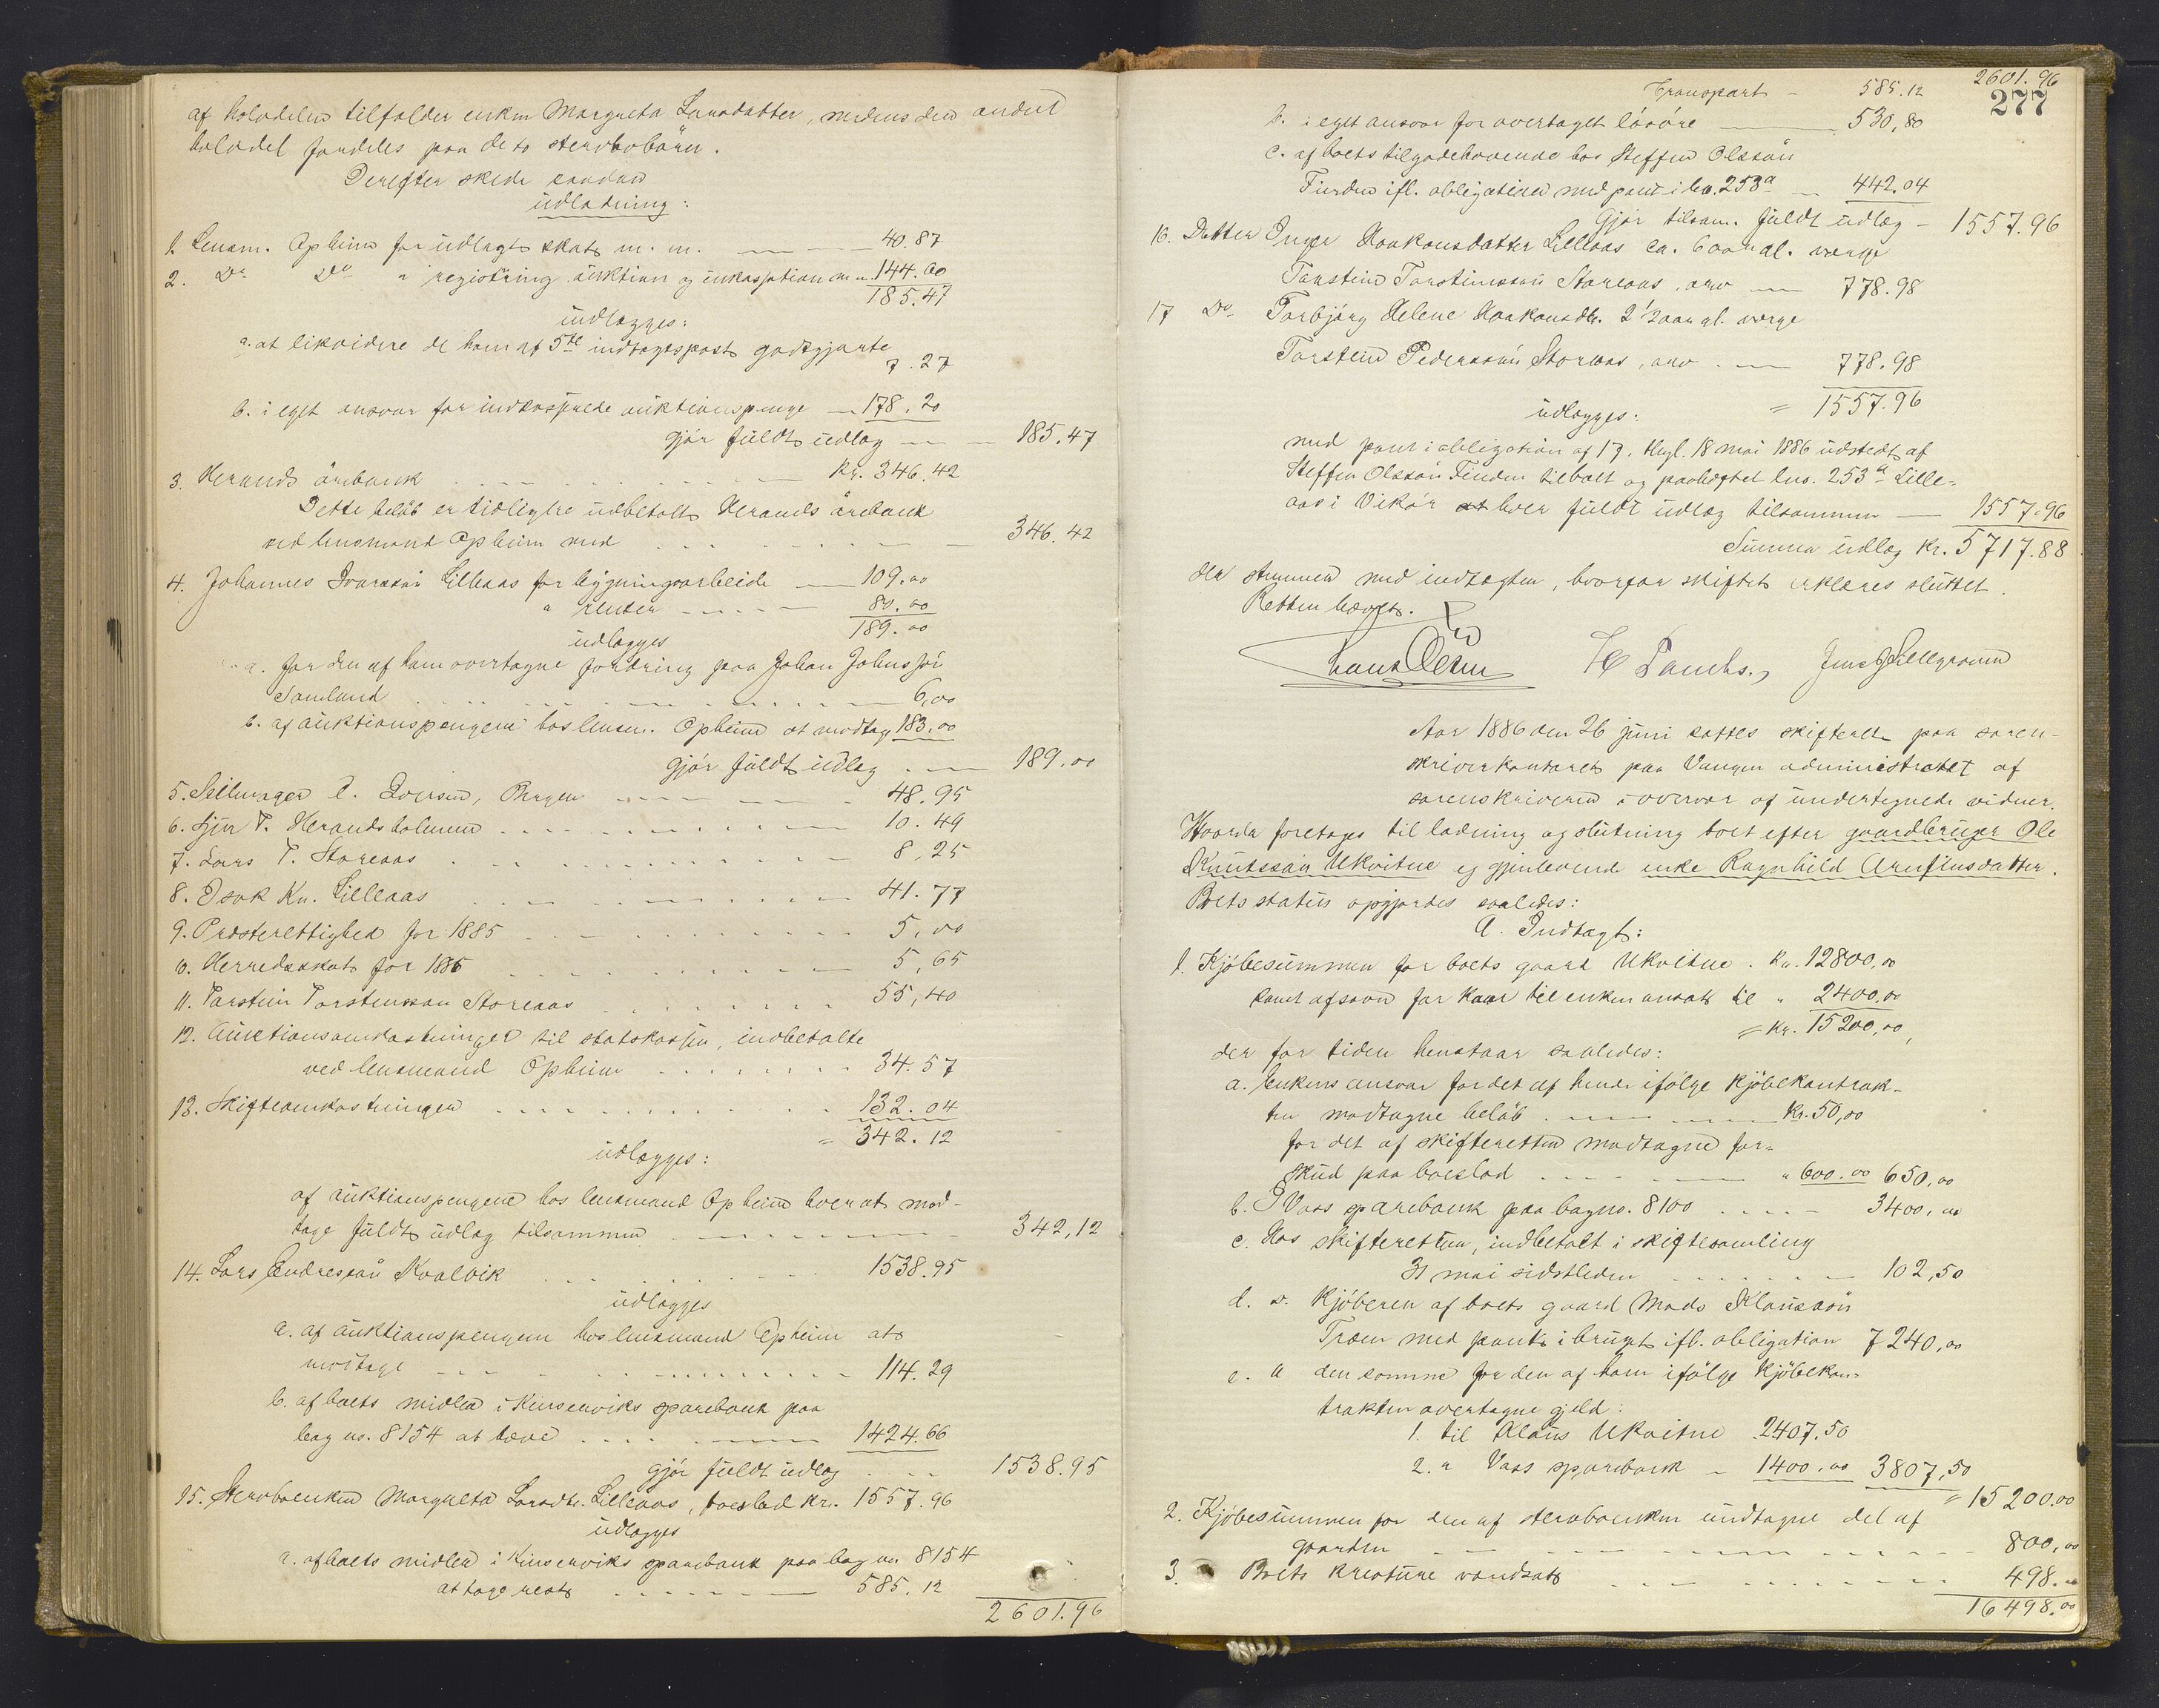 af halvdelen tilfalder enken Margreta Larsdatter, medens den anden
halvdel fordeles paa de to stervbobørn.
Derefter skede saadan
udlodning:
1. Lensm. Opheim for udlagt skat m. m. 40.87
2. Do Do " registrering auktion og inkassation m m 144.60
185.47
udlægges:
a. at likvidere de ham af 5te indtægtspost godtgjorte
7.27
b. i eget ansvar for indkasserede auktionspenge 178.20
gjør fuldt udlæg 185.47
3. Herands ørebank Kr. 346.42
Dette beløb er tidligere udbetalt Herands ørebank
ved lensmand Opheim med 346.42
4. Johannes Ivarssøn Lilleaas for bygningsarbeide 109.00
" renter 80.00
189.00
udlægges
a. for den af ham overtagne fordring paa Johan Johnssøn
Samland 6,00
b. af auktionspengene hos lensm. Opheim at modtage 183.00
gjør fuldt udlæg 189.00
5. Seilmager C. Iversen, Bergen 48.95
6. Sjur T. Herandsholmen 10.49
7. Lars T. Storeaas 8,25
8. Isak Kn. Lilleaas 41.77
9. Presterettighed for 1885 5,00
10. Herredsskat for 1885 5,65
11. Torstein Torsteinssøn Storeaas 55,40
12. Auktionsomkostninger til statskassen, indbetalte
ved lensmand Opheim 34.57
13. Skifteomkostninger 132.04
= 342.12
udlægges:
af auktionspengene hos lensmand Opheim hver at mod-
tage fuldt udlæg tilsammen 342,12
14. Lars Endressøn Kvalvik 1538.95
udlægges
a. af auktionspengene hos lensmand Opheim at
modtage 114.29
b. af boets midler i Kinserviks sparebank paa
bog no. 8154 at hæve 1424.66
gjør fuldt udlæg 1538.95
15. Stervboenken Margreta Larsdtr. Lilleaas, boeslod kr. 1557.96
udlægges
a. af boets midler i Kinserviks sparebank paa bog no 8154
at tage rest 585.12
2601.96
Transport 585.12 2601.96
277
b. i eget ansvar for overtaget løsøre 530,80
c. af boets tilgodehavende hos Steffen Olssøn
Tinden ifl. obligation med pant i lno. 253a 442.04
gjør tilsam. fuldt udlæg 1557.96
16. Datter Inger Haakonsdatter Lilleaas ca. 6 aar gl. verge
Torstein Torsteinssøn Storeaas, arv 778.98
17 Do. Torbjørg Helene Haakonsdtr. 2 1/2 aar gl. verge
Torstein Pederssøn Storeaas, arv 778.98
= 1557.96
udlægges:
med pant i obligation af 17. thgl. 18 mai 1886 udstedt af
Steffen Olssøn Tinden tilholt og paaheftet lno. 253a Lille-
aas i Vikør hver fuldt udlæg tilsammen 1557.96
Summa udlæg kr. 5717.88
der stemmer med indtægten, hvorfor skiftet erklæres sluttet.
Retten hævet.
Aar 1886 den 26 juni sattes skifteret paa soren-
skriverkontoret paa Vangen administreret af
sorenskriveren i overvær af undertegnede vidner.
Hvorda foretoges til lodning og slutning boet efter gaardbruger Ole
Knutssøn Ukvitne og gjenlevende enke Ragnhild Arnfinsdatter.
Boets status opgjordes saaledes:
A. Indtægt:
1. Kjøbesummen for boets gaard Ukvitne. Kr. 12800,00
samt afsavn for kaar til enken ansat til " 2400,00
= Kr. 15200,00,
der for tiden henstaar saaledes:
a. Enkens ansvar for det af hende ifølge kjøbekontrak-
ten modtagne beløb Kr. 50,00
for det af skifteretten modtagne for-
skud paa boeslod " 600.00 650,00
b. I Voss sparebank paa bog no. 8100 3400,00
c. Hos skifteretten, indbetalt i skiftesamling
31 mai sidstleden 102,50
d. " Kjøberen af boets gaard Mads Klaussøn
Træen med pant i bruget ifl. obligation 7240,00
e. " den samme for den af ham ifølge kjøbekon-
trakten overtagne gjeld:
1. til Klaus Ukvitne 2407.50
2. " Voss sparebank 1400.00 3807,50
= 15200.00
2. Kjøbesummen for den af stervboenken undtagne del af
gaarden 800,00
3. Boets kreature vandsat 498.00
16498.00